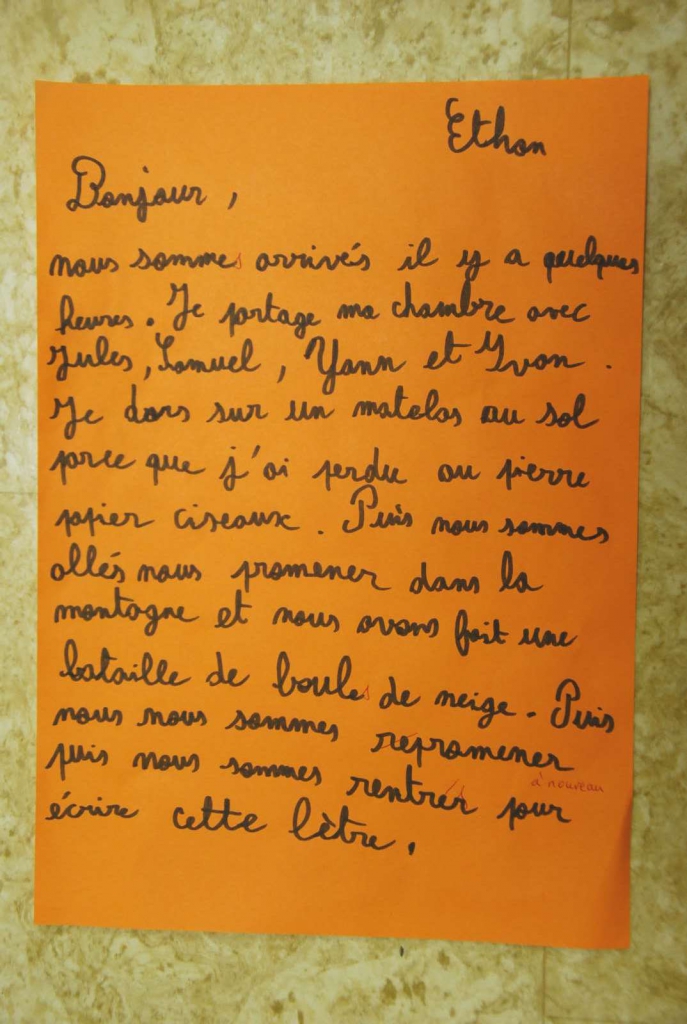 Ethan
Bonjour,
nous sommes arrivés il y a quelques
heures. Je partage ma chambre avec
Jules, Samuel, Yann et Yvon.
Je dors sur un matelas au sol
parce que j'ai perdu au pierre
papier ciseaux. Puis nous sommes
allés nous promener dans la
montagne et nous avons fait une
bataille de boules de neige. Puis
nous nous sommes repromener
à nouveau
puis nous sommes rentrés pour
écrire cette lètre.